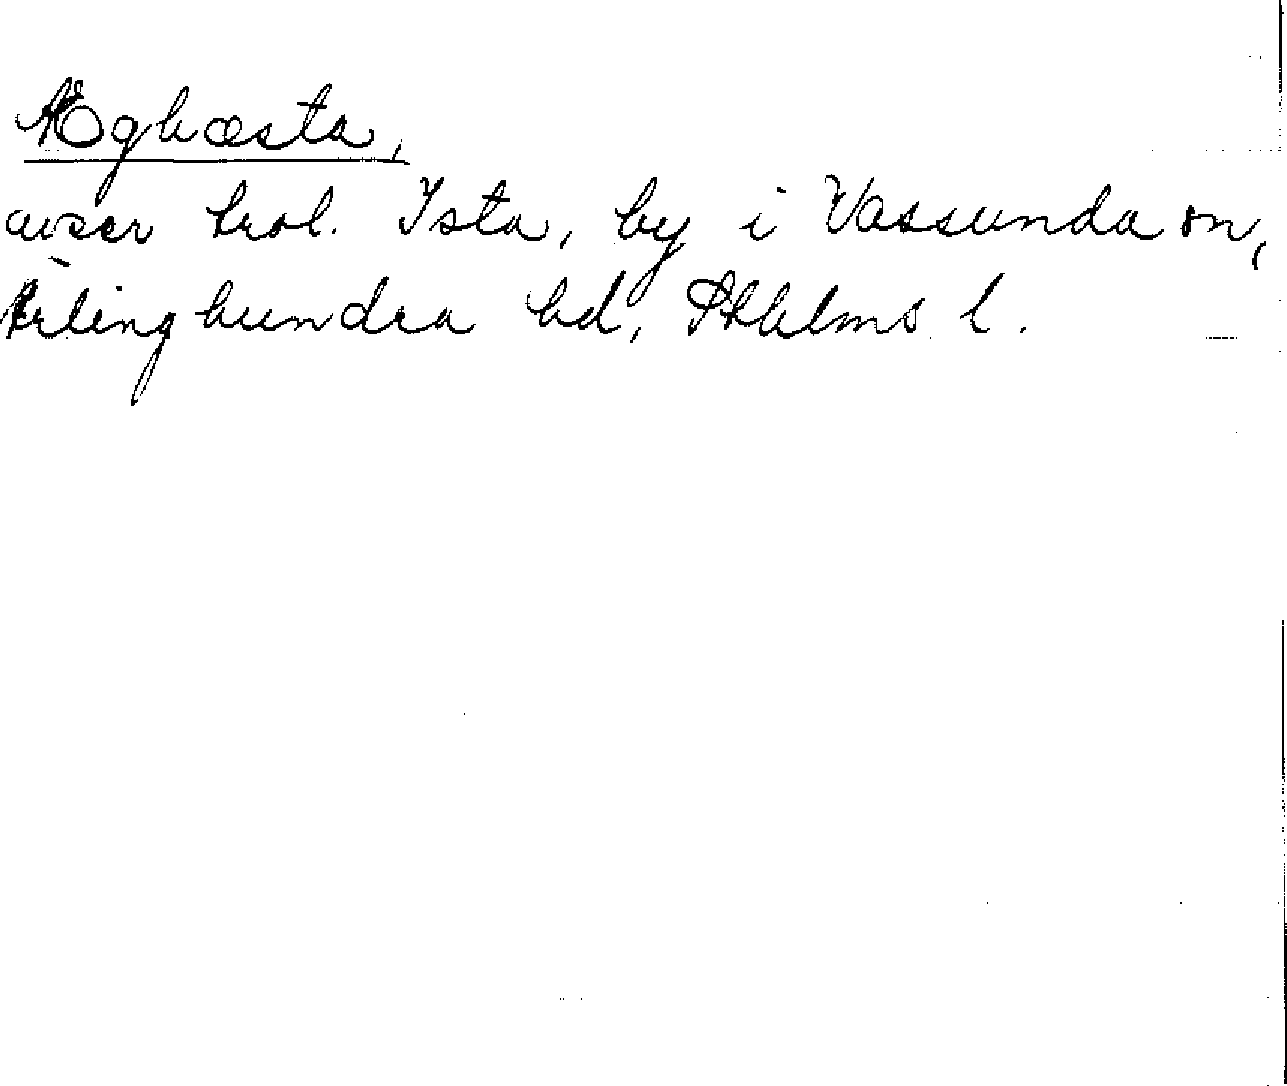 Æghæsta,
avser trol. Ista, by i Vassunda sn,
Ärlinghundra hd, Sthlms l.